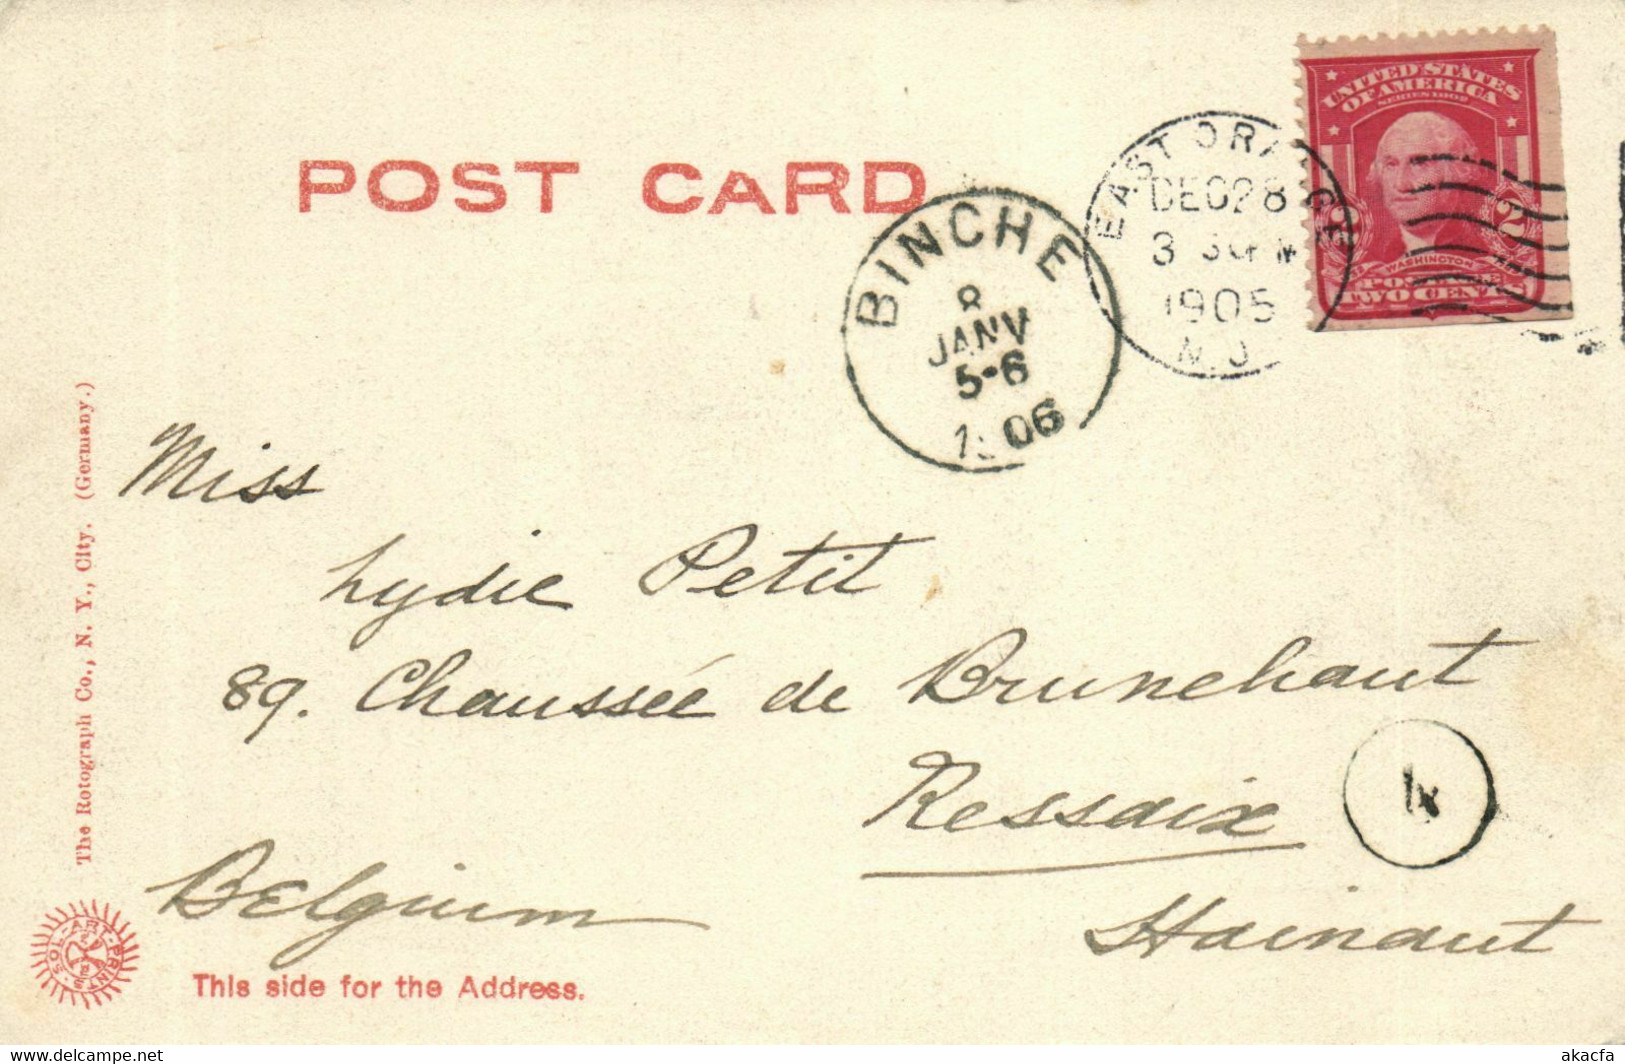 POST CARD
UNITED STATES
OF AMERICA
SERIES 1902
2 2
WASHINGTON
POSTAGE
TWO CENTS
EAST ORANGE
DEC 28
3 30 PM
1905
N.J.
BINCHE
8
JANV
5-6
1906
Miss
Lydie Petit
89. Chaussée de Brunehaut
Ressaix
Hainaut
Belgium
The Rotograph Co., N. Y., City. (Germany.)
SOL-ART-PRINTS
This side for the Address.
www.delcampe.net
akacfa